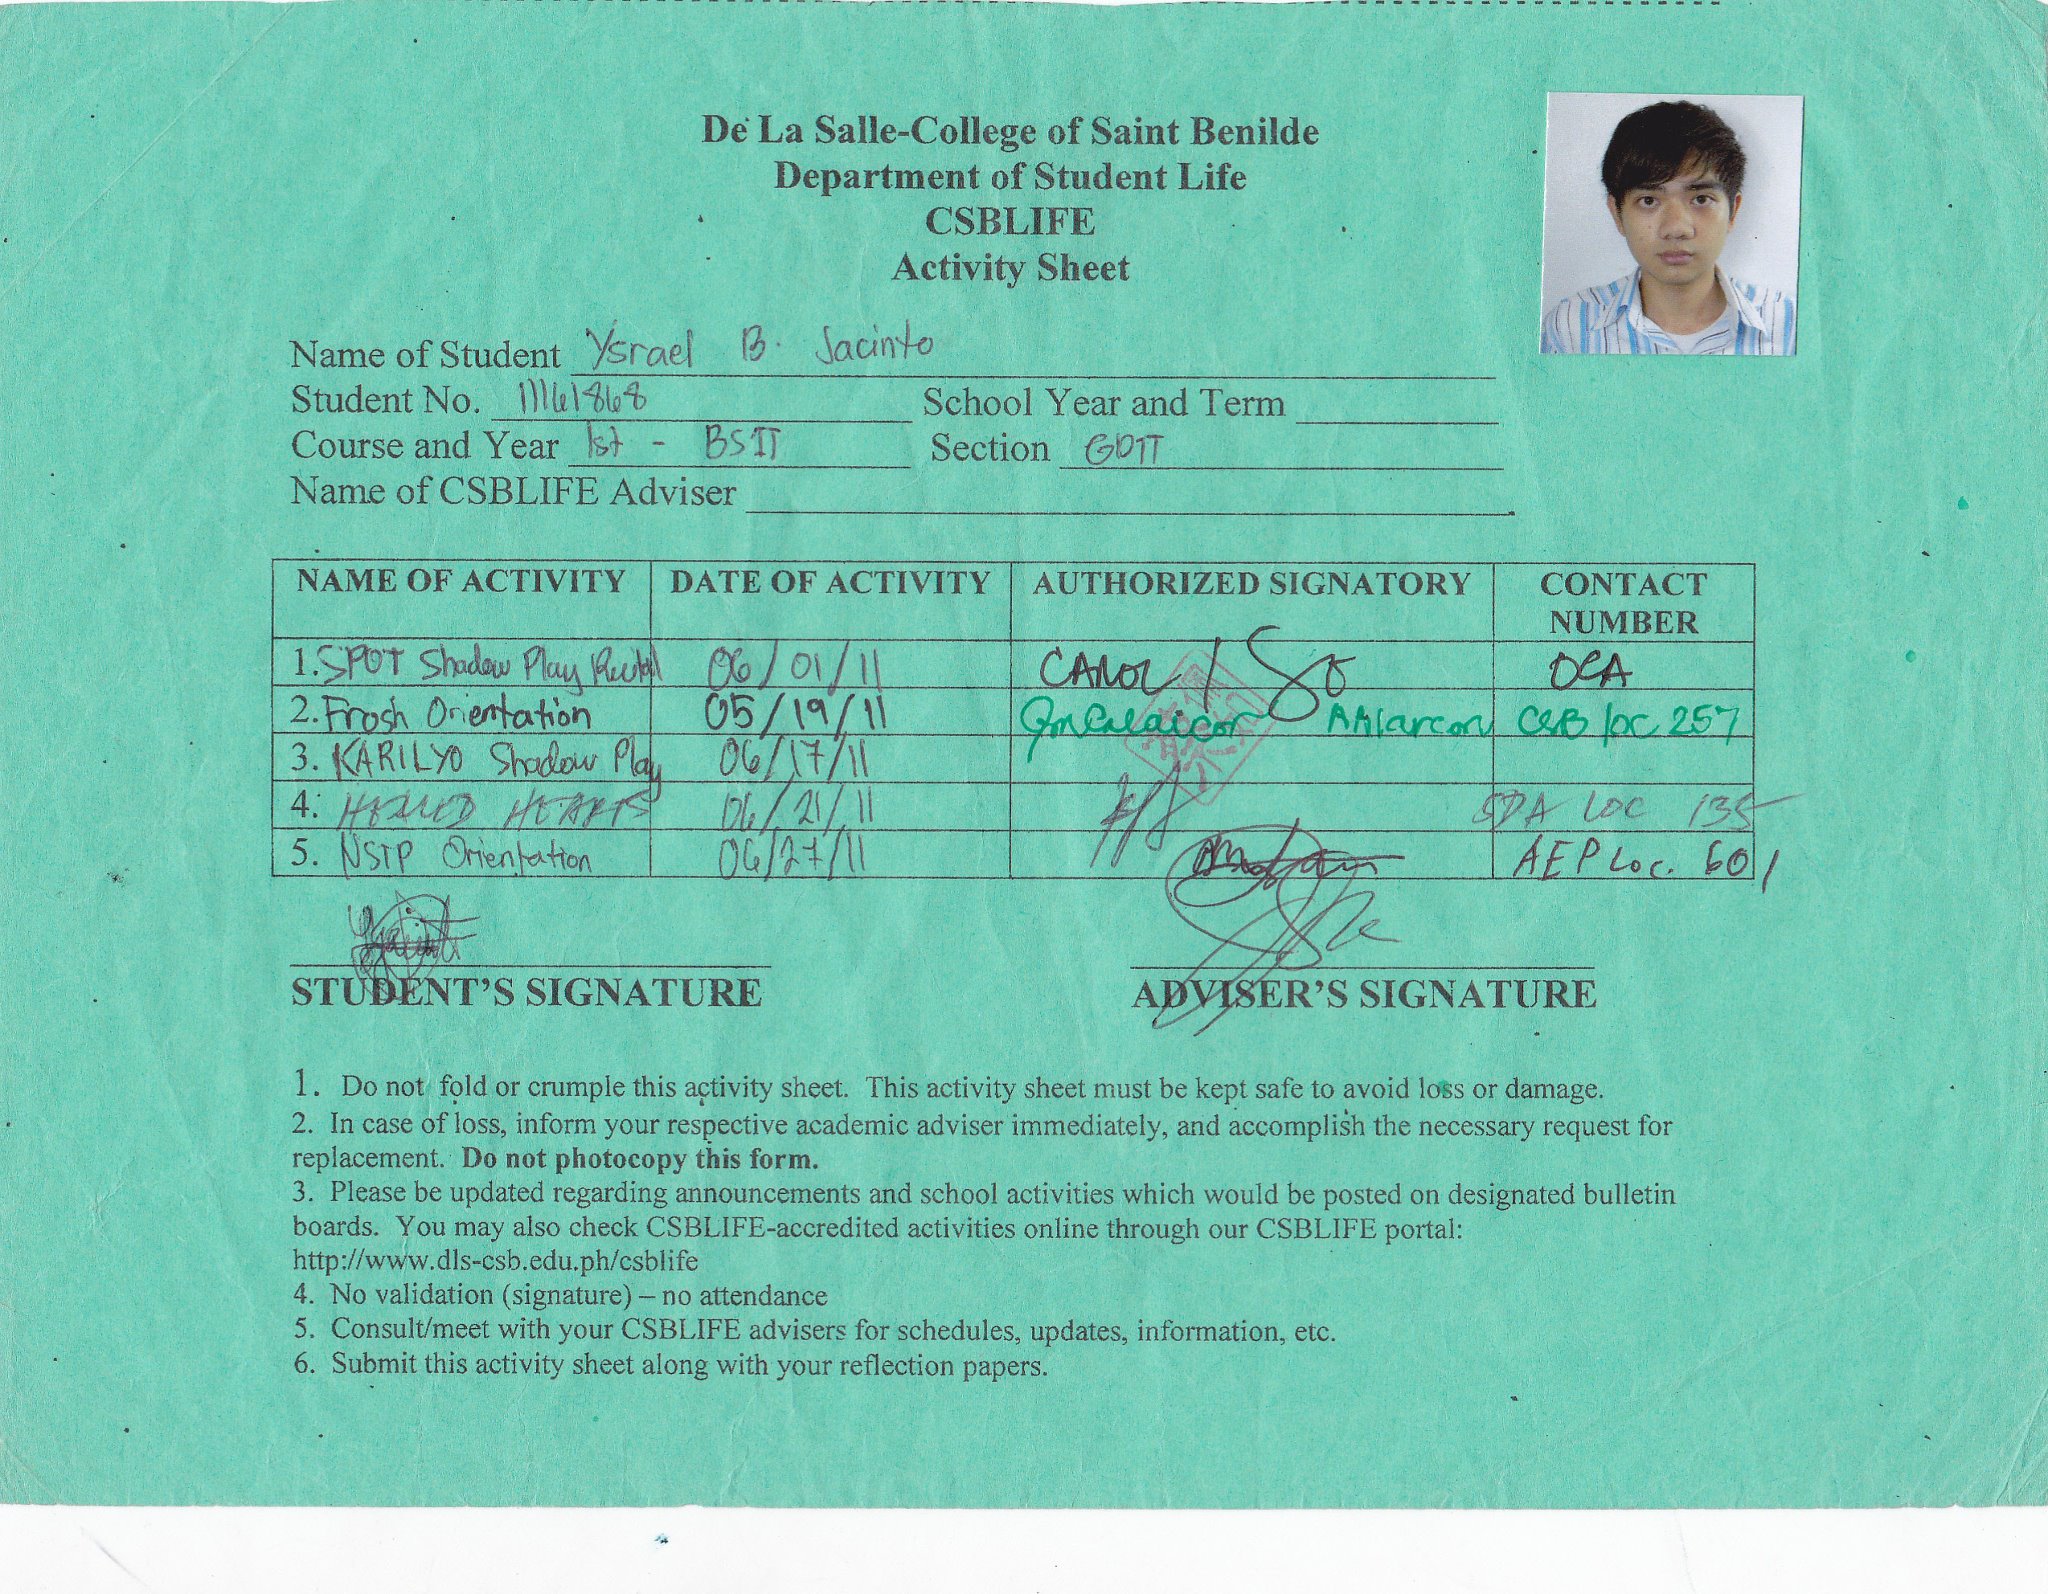 De La Salle-College of Saint Benilde
Department of Student Life
CSBLIFE
Activity Sheet
Name of Student Ysrael B. Jacinto
Student No. 11161868 School Year and Term
Course and Year 1st - BSIT Section GD1T
Name of CSBLIFE Adviser
NAME OF ACTIVITY DATE OF ACTIVITY AUTHORIZED SIGNATORY CONTACT NUMBER
1. SPOT Shadow Play Recital 06/01/11 CAROL / So OCA
2. Frosh Orientation 05/19/11 AAlarcon CSB loc 257
3. KARILYO Shadow Play 06/17/11
4. HEARTS 06/21/11 SDA LOC 135
5. NSTP Orientation 06/27/11 AEP Loc. 601
STUDENT'S SIGNATURE ADVISER'S SIGNATURE
1. Do not fold or crumple this activity sheet. This activity sheet must be kept safe to avoid loss or damage.
2. In case of loss, inform your respective academic adviser immediately, and accomplish the necessary request for
replacement. Do not photocopy this form.
3. Please be updated regarding announcements and school activities which would be posted on designated bulletin
boards. You may also check CSBLIFE-accredited activities online through our CSBLIFE portal:
http://www.dls-csb.edu.ph/csblife
4. No validation (signature) – no attendance
5. Consult/meet with your CSBLIFE advisers for schedules, updates, information, etc.
6. Submit this activity sheet along with your reflection papers.